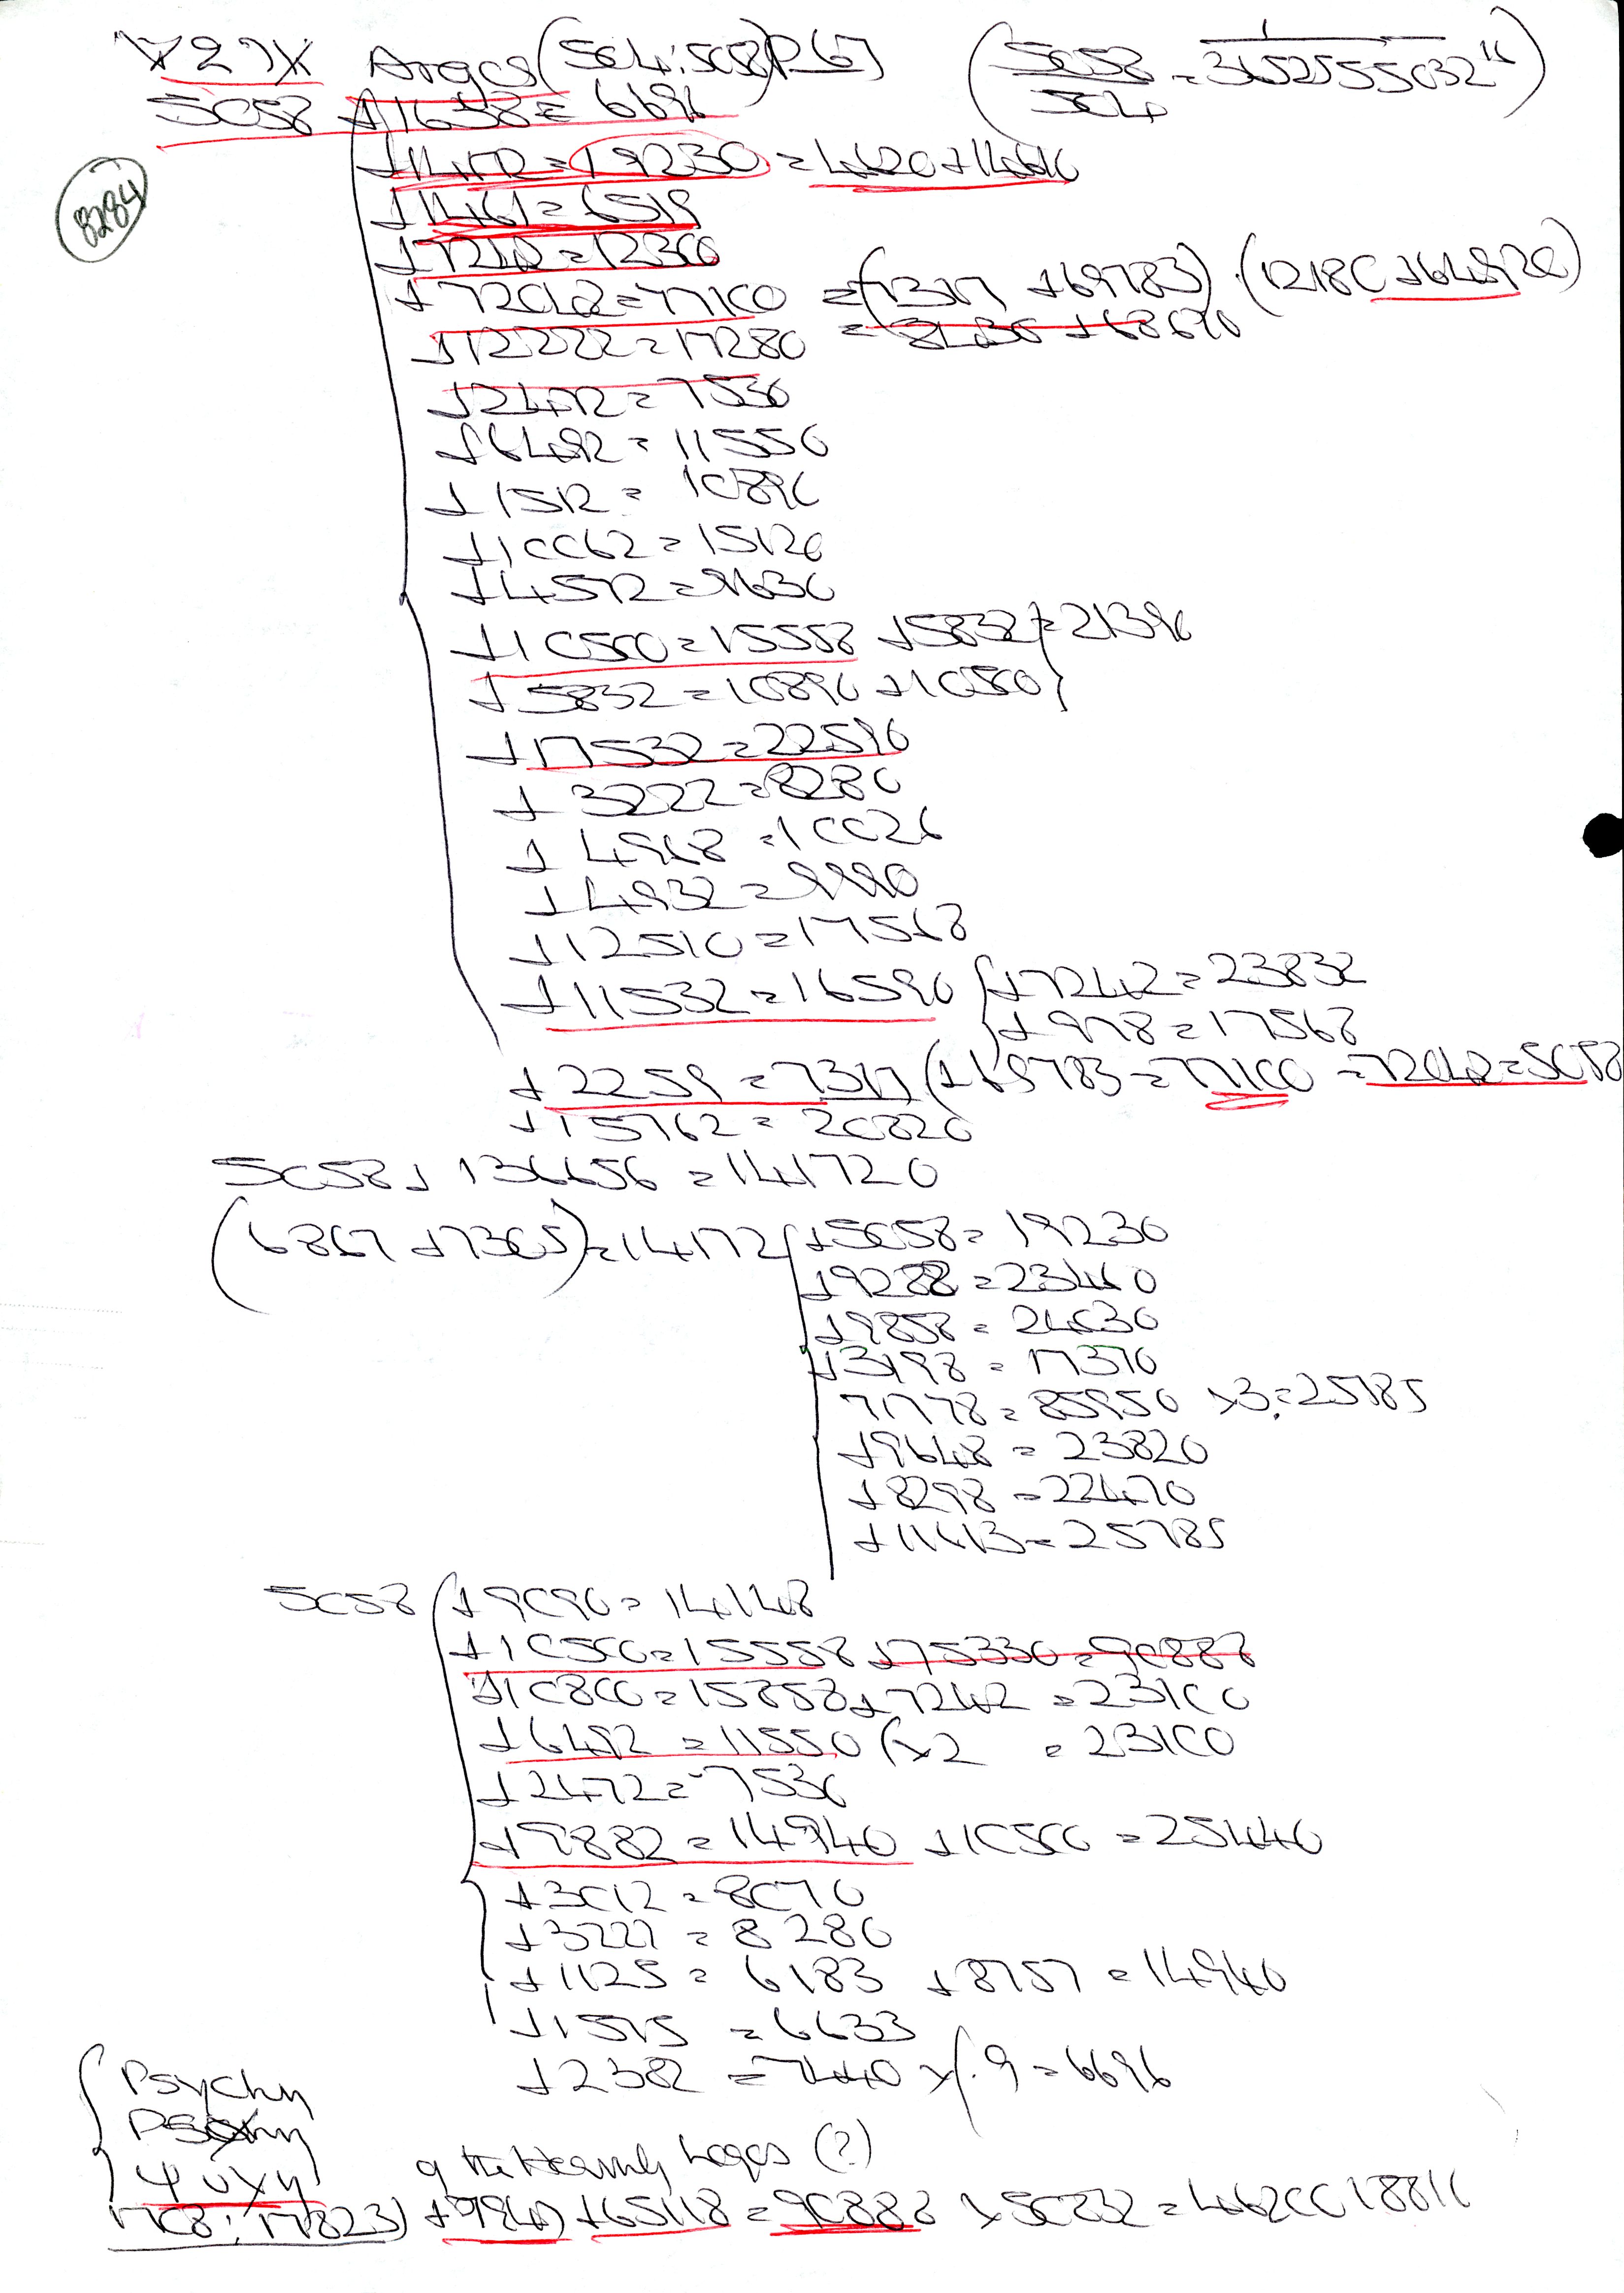 Argos (504:5058) P67 (5058/504 = 3652555032)
5058 +1638 = 6696
8284
+14172 = 19230 = 4620 + 14610
+1461 = 6519
+7242 = 12300
+72042 = 77100 = (7317 + 69783) · (12180 + 64920)
+12222 = 17280 = 8430 + 68670
+2472 = 7530
+6492 = 11550
+1512 = 10890
+10062 = 15120
+4572 = 9630
+10500 = 15558 +5832 } = 21390
+5832 = 10890 +10500 }
+17532 = 22590
+3222 = 8280
+4968 = 10026
+4932 = 9990
+12510 = 17568
+11532 = 16590 ( +7242 = 23832
+978 = 17568
+2259 = 7317 (+69783 = 77100 - 72042 = 5058
+15762 = 20820
5058 + 136656 = 141720
(6867 + 7305) = 14172 ( +5058 = 19230
+9288 = 23460
+9858 = 24030
+3198 = 17370
71778 = 85950 ×3 = 25785
+9648 = 23820
+8298 = 22470
+11613 = 25785
5058 ( +9090 = 14148
+10500 = 15558 +75330 = 90888
+10800 = 15858 + 7242 = 23100
+6492 = 11550 (×2 = 23100
+2472 = 7530
+9882 = 14940 +10500 = 25440
+3012 = 8070
+3222 = 8280
+1125 = 6183 +8757 = 14940
+1575 = 6633
+2382 = 7440 × (.9 = 6696
Psychη
ψυχη of the Heavenly Logos (?)
1708 : 17823) +7940) +65118 = 90888 × 50832 = 4620018811